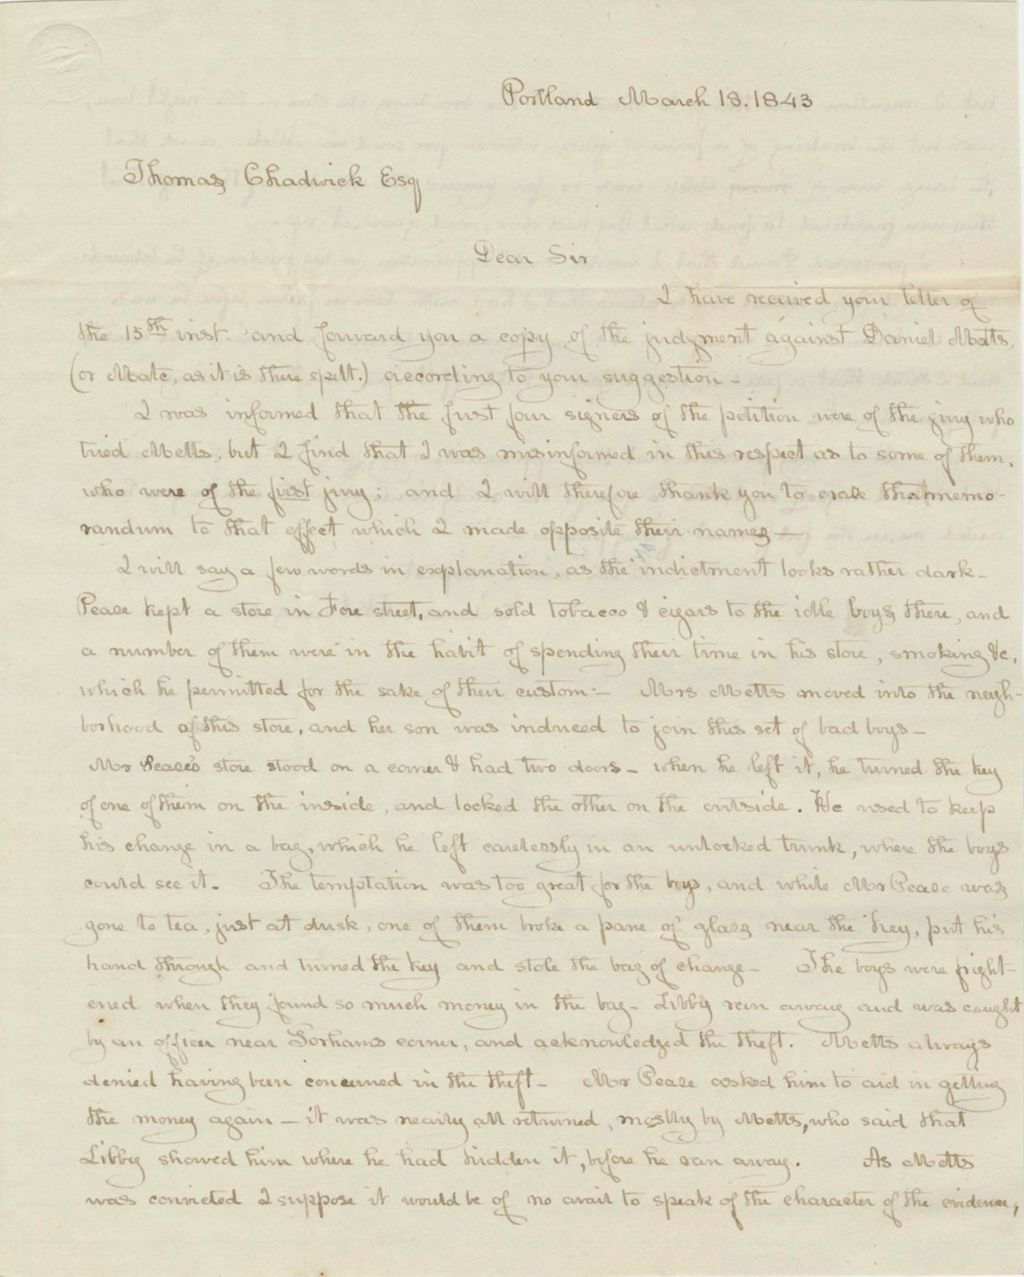 Portland March 18. 1843
Thomas Chadwick Esq
Dear Sir
I have received your letter of
the 15th inst. and forward you a copy of the judgment against Daniel Metts,
(or Mate, as it is there spelt.) according to your suggestion -
I was informed that the first four signers of the petition were of the jury who
tried Metts, but I find that I was misinformed in this respect as to some of them,
who were of the first jury; and I will therefore thank you to erase that memo-
randum to that effect which I made opposite their names -
I will say a few words in explanation, as the indictment looks rather dark -
Pease kept a store in Fore street, and sold tobacco & cigars to the idle boys there, and
a number of them were in the habit of spending their time in his store, smoking &c,
which he permitted for the sake of their custom: - Mrs Metts moved into the neigh-
borhood of this store, and her son was induced to join this set of bad boys -
Mr Pease's store stood on a corner & had two doors - when he left it, he turned the key
of one of them on the inside, and locked the other on the outside. He used to keep
his change in a bag, which he left carelessly in an unlocked trunk, where the boys
could see it. The temptation was too great for the boys, and while Mr Pease was
gone to tea, just at dusk, one of them broke a pane of glass near the key, put his
hand through and turned the key and stole the bag of change - The boys were fright-
ened when they found so much money in the bag - Libby ran away and was caught
by an officer near Gorham's corner, and acknowledged the theft. Metts always
denied having been concerned in the theft - Mr Pease asked him to aid in getting
the money again - it was nearly all returned, mostly by Metts, who said that
Libby showed him where he had hidden it, before he ran away. As Metts
was convicted I suppose it would be of no avail to speak of the character of the evidence,